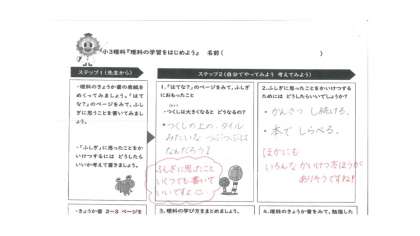 小3理科『理科の学習をはじめよう』 名前( )
ステップ1(先生から)
ステップ2(自分でやってみよう 考えてみよう)
・理科のきょうか書の表紙を
めくってみましょう。「はて
な？」のページをみて、ふし
ぎに思うことを書いてみまし
ょう。
・「ふしぎ」に思ったことをか
いけつするには どうしたら
いいか考えて書きましょう。
1.「はてな？」のページをみて、ふしぎ
におもったこと
・つくしは大きくなると どうなるの？
・つくしの上の、タイル
みたいな つぶつぶは
なんだろう？
ふしぎに思ったこと
いくつでも書いて
いいですよ☺
2.ふしぎに思ったことをかいけつする
ためには どうしたらいいでしょうか？
・かんさつ し続ける。
・本で しらべる。
ほかにも
いろんな かいけつ方ほうが
ありそうですね！
・きょうか書 2－3 ページを
3.理科の学び方をまとめましょう。
4.理科のきょうか書をみて、勉強した